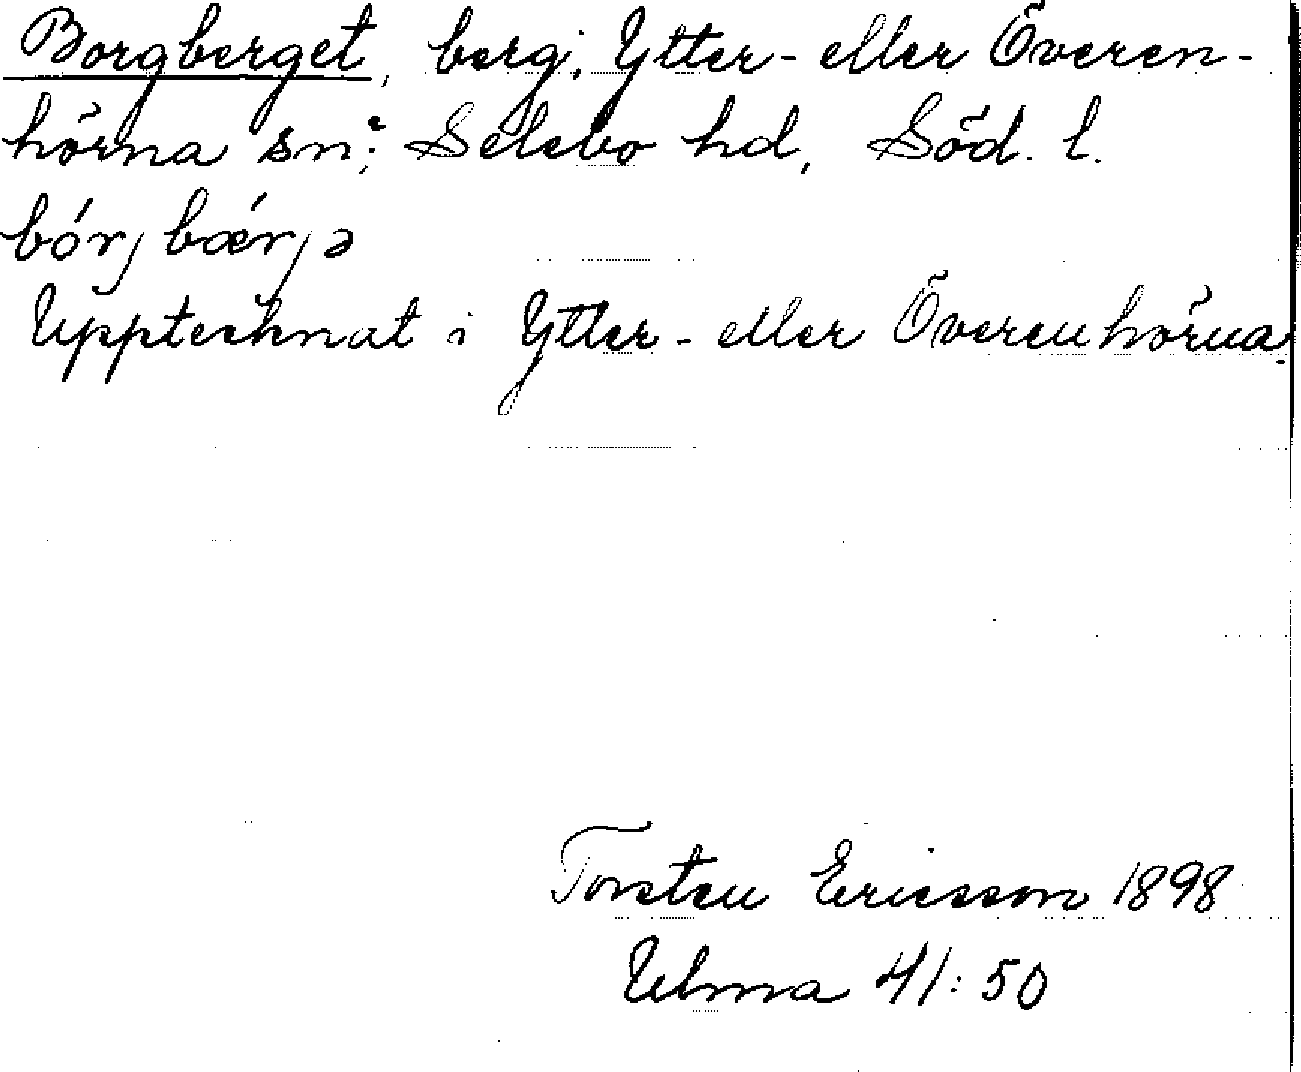 Borgberget, berg, Ytter- eller Överen-
hörna sn; Selebo hd, Söd. l.
bórj bærjə
Upptecknat i Ytter- eller Överenhörna.
Torsten Ericsson 1898
Ulma 41:50